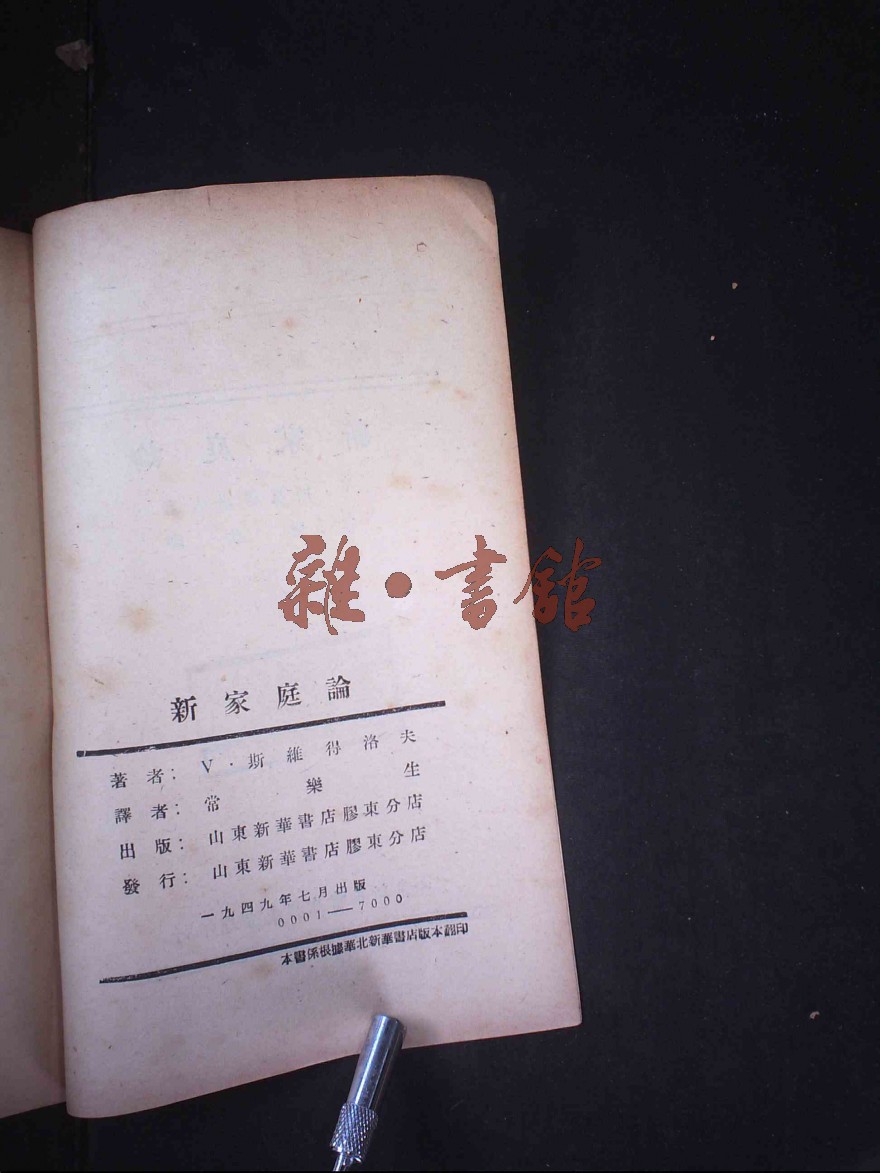 雜·書館
新家庭論
著者：V·斯維得洛夫
譯者：常樂生
出版：山東新華書店膠東分店
發行：山東新華書店膠東分店
一九四九年七月出版
0001—7000
本書係根據華北新華書店版本翻印